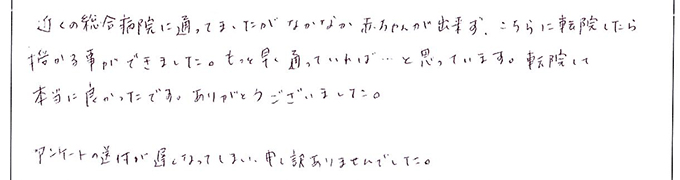 近くの総合病院に通ってましたがなかなか赤ちゃんが出来ず、こちらに転院したら
授かる事ができました。もっと早く通っていれば…と思っています。転院して
本当に良かったです。ありがとうございました。
アンケートの送付が遅くなってしまい、申し訳ありませんでした。